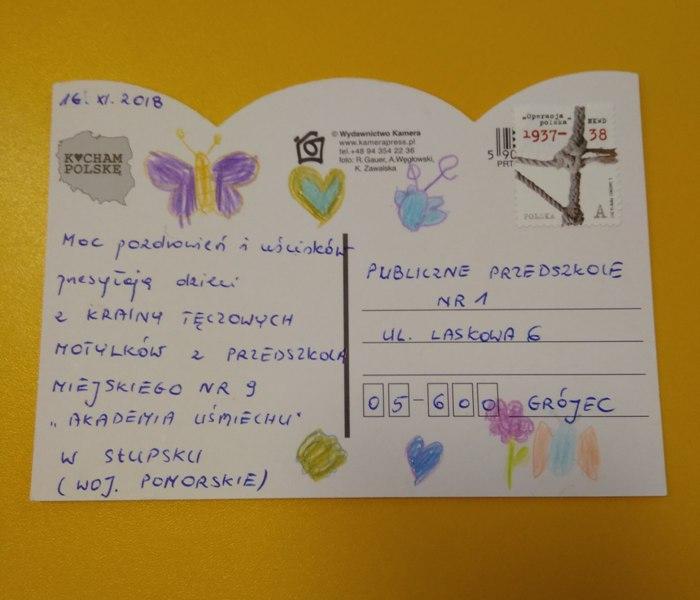 16. XI. 2018
K♥CHAM
POLSKĘ
© Wydawnictwo Kamera
www.kamerapress.pl
tel.+48 94 354 22 36
foto: R.Gauer, A.Węgłowski,
K. Zawalska
5 90
PRT
„Operacja
polska"
NKWD
1937-38
POLSKA
A
Moc pozdrowień i uścisków
przesyłają dzieci
z KRAINY TĘCZOWYCH
MOTYLKÓW z PRZEDSZKOLA
MIEJSKIEGO NR 9
„AKADEMIA UŚMIECHU"
W SŁUPSKU
(WOJ. POMORSKIE)
PUBLICZNE PRZEDSZKOLE
NR 1
UL. LASKOWA 6
05-600 GRÓJEC